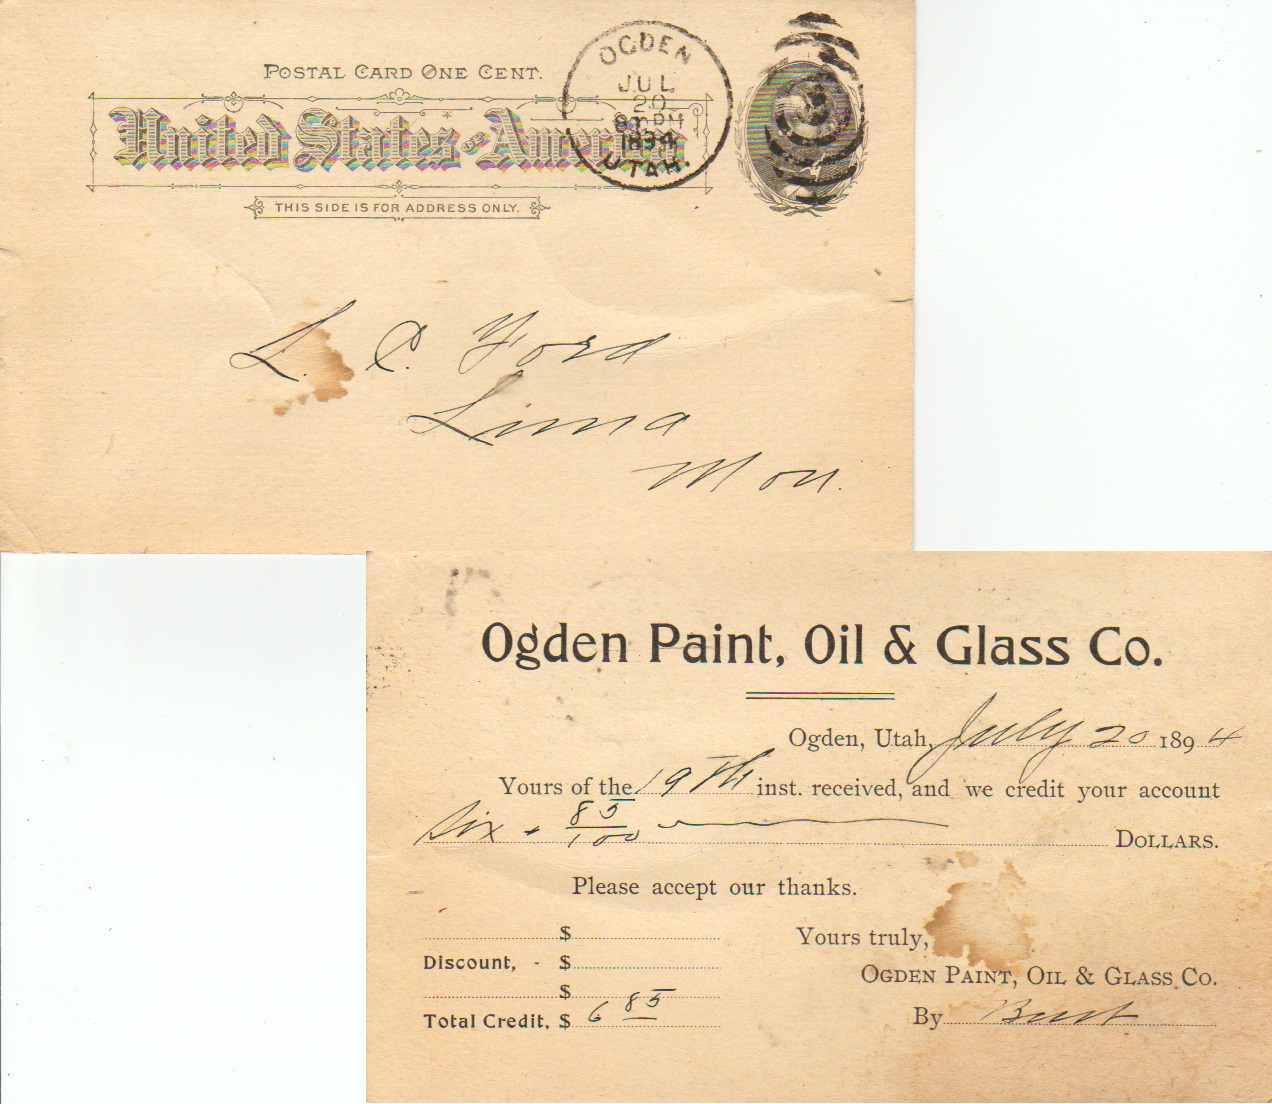 POSTAL CARD ONE CENT.
United States of America
THIS SIDE IS FOR ADDRESS ONLY.
OGDEN
JUL
20
8 PM
1894
UTAH.
L. C. Ford
Lima
Mon.
Ogden Paint, Oil & Glass Co.
Ogden, Utah, July 20 1894
Yours of the 19th inst. received, and we credit your account
Six + 85/100 DOLLARS.
Please accept our thanks.
$
Discount, - $
$
Total Credit, $ 6 85
Yours truly,
OGDEN PAINT, OIL & GLASS CO.
By